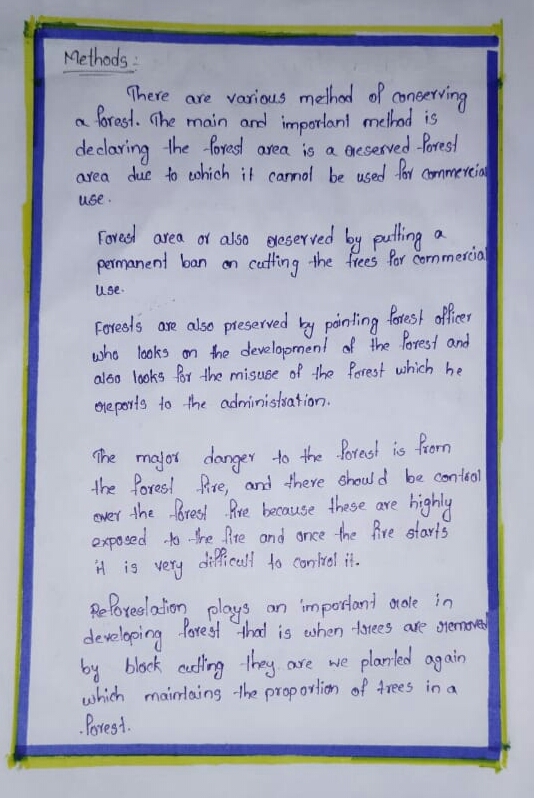 Methods :
There are various method of conserving
a forest. The main and important method is
declaring the forest area is a reserved forest
area due to which it cannot be used for commercial
use.
Forest area or also reserved by putting a
permanent ban on cutting the trees for commercial
use.
Forests are also preserved by pointing forest officer
who looks on the development of the forest and
also looks for the misuse of the forest which he
reports to the administration.
The major danger to the foreist is from
the forest fire, and there should be control
over the forest fire because these are highly
exposed to the fire and once the fire starts
it is very difficult to control it.
Reforestation plays an important role in
developing forest that is when trees are removed
by block cutting they are we planted again
which maintains the proportion of trees in a
forest.